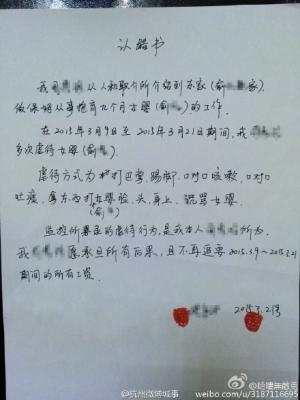 认错书
我 从人和职介所介绍到东家(俞 家),
做保姆从事抱育九个月女婴(俞 )的工作。
在2015年3月9日至2015年3月21日期间,我
多次虐待女婴(俞 )。
虐待方式为 打巴掌、踢脚、口对口咳嗽、口对口
吐痰、拿东西打女婴脸、头、身上、辱骂女婴
(俞 )
监控所暴露的虐待行为,是我本人 所为。
我 愿承担所有后果,且不再追要2015.3.9~2015.3.21
期间的所有工资。
2015.3.21号
@杭州微博城事
weibo.com/u/3187116695